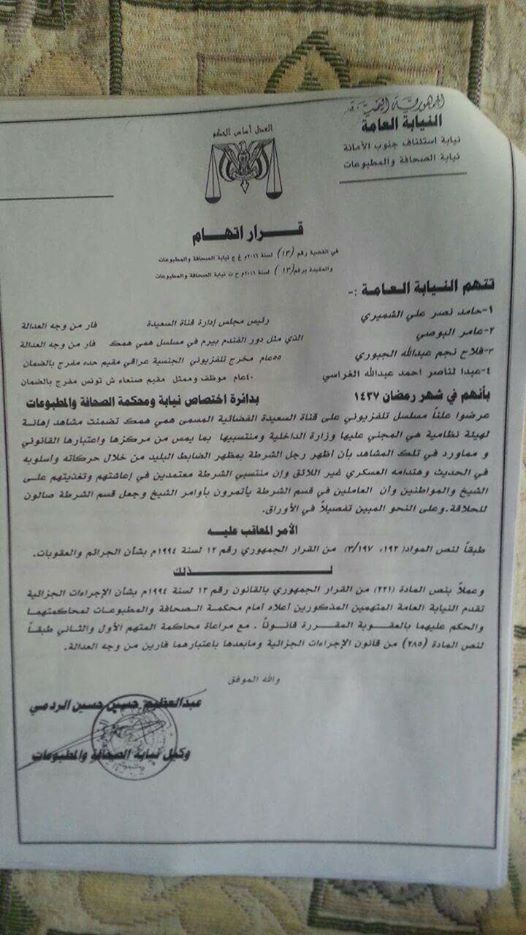 الجمهورية اليمنية
النيابة العامة
نيابة استئناف جنوب الأمانة
نيابة الصحافة والمطبوعات
العدل أساس الحكم
قرار اتهام
في القضية رقم (١٣) لسنة ٢٠١٦م غ ج نيابة الصحافة والمطبوعات
والمقيدة برقم (١٣) لسنة ٢٠١٦م ح ت نيابة الصحافة والمطبوعات
تتهم النيابة العامة :-
١-حامد نصر علي الشميري رئيس مجلس إدارة قناة السعيدة فار من وجه العدالة
٢-عامر البوصي الذي مثل دور الفندم بيرم في مسلسل همي همك فار من وجه العدالة
٣-فلاح نجم عبدالله الجبوري ٥٥عام مخرج تلفزيوني الجنسية عراقي مقيم حده مفرج بالضمان
٤-عبدالناصر احمد عبدالله الغراسي ٤٠عام موظف وممثل مقيم صنعاء ش تونس مفرج بالضمان
بأنهم في شهر رمضان ١٤٣٧ بدائرة اختصاص نيابة ومحكمة الصحافة والمطبوعات
عرضوا علناً مسلسل تلفزيوني على قناة السعيدة الفضائية المسمى همي همك تضمنت مشاهد إهانة
لهيئة نظامية هي المجني عليها وزارة الداخلية ومنتسبيها بما يمس من مركزها واعتبارها القانوني
و مماورد في تلك المشاهد بأن أظهر رجل الشرطة بمظهر الضابط البليد من خلال حركاته وأسلوبه
في الحديث وهندامه العسكري غير اللائق وإن منتسبي الشرطة معتمدين في إعاشتهم وتغذيتهم على
الشيخ والمواطنين وأن العاملين في قسم الشرطة يأتمرون بأوامر الشيخ وجعل قسم الشرطة صالون
للحلاقة.وعلى النحو المبين تفصيلاً في الأوراق.
الأمر المعاقب عليه
طبقاً لنص المواد(١٩٢، ٣/١٩٧) من القرار الجمهوري رقم ١٢ لسنة ١٩٩٤م بشأن الجرائم والعقوبات.
لـــــذلك
وعملاً بنص المادة (٢٢١) من القرار الجمهوري بالقانون رقم ١٣ لسنة ١٩٩٤م بشأن الإجراءات الجزائية
تقدم النيابة العامة المتهمين المذكورين أعلاه أمام محكمة الصحافة والمطبوعات لمحاكمتهما
والحكم عليهما بالعقوبة المقررة قانوناً . مع مراعاة محاكمة المتهم الأول والثاني طبقاً
لنص المادة (٢٨٥) من قانون الإجراءات الجزائية ومابعدها باعتبارهما فارين من وجه العدالة.
والله الموفق
عبدالعظيم حسين حسين الردمي
وكيل نيابة الصحافة والمطبوعات